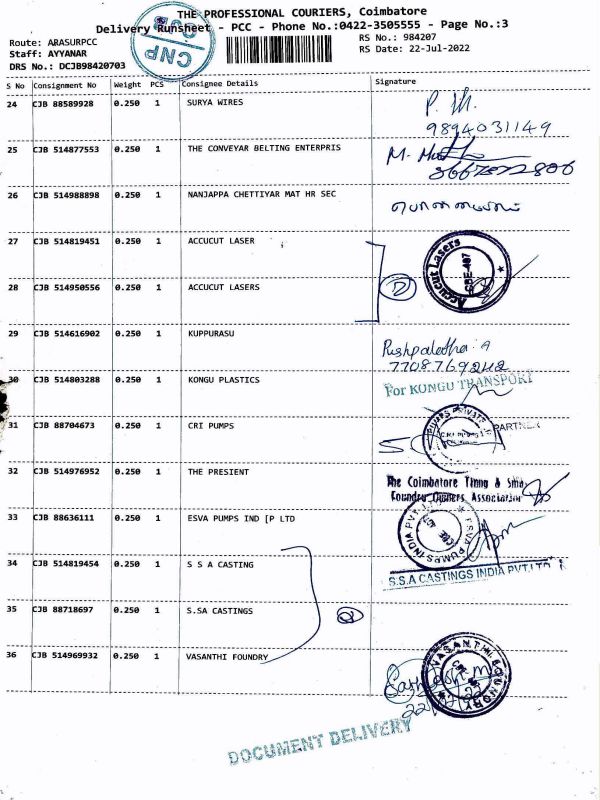 THE PROFESSIONAL COURIERS, Coimbatore
Delivery Runsheet - PCC - Phone No.:0422-3505555 - Page No.:3
Route: ARASURPCC
RS No.: 984207
Staff: AYYANAR
RS Date: 22-Jul-2022
DRS No.: DCJB98420703
CNP
S No Consignment No Weight PCS Consignee Details Signature
24 CJB 88589928 0.250 1 SURYA WIRES
9894031149
25 CJB 514877553 0.250 1 THE CONVEYAR BELTING ENTERPRIS
26 CJB 514988898 0.250 1 NANJAPPA CHETTIYAR MAT HR SEC
27 CJB 514819451 0.250 1 ACCUCUT LASER
Accucut Lasers
CBE-407
28 CJB 514950556 0.250 1 ACCUCUT LASERS
29 CJB 514616902 0.250 1 KUPPURASU
30 CJB 514803288 0.250 1 KONGU PLASTICS
For KONGU TRANSPORT
PARTNER
31 CJB 88704673 0.250 1 CRI PUMPS
32 CJB 514976952 0.250 1 THE PRESIENT
The Coimbatore Tinny & Small
Foundry Owners Association
33 CJB 88636111 0.250 1 ESVA PUMPS IND [P LTD
ESVA PUMPS INDIA PVT. LTD
34 CJB 514819454 0.250 1 S S A CASTING
S.S.A CASTINGS INDIA PVT LTD
35 CJB 88718697 0.250 1 S.SA CASTINGS
36 CJB 514969932 0.250 1 VASANTHI FOUNDRY
VASANTHI FOUNDRY
DOCUMENT DELIVERY